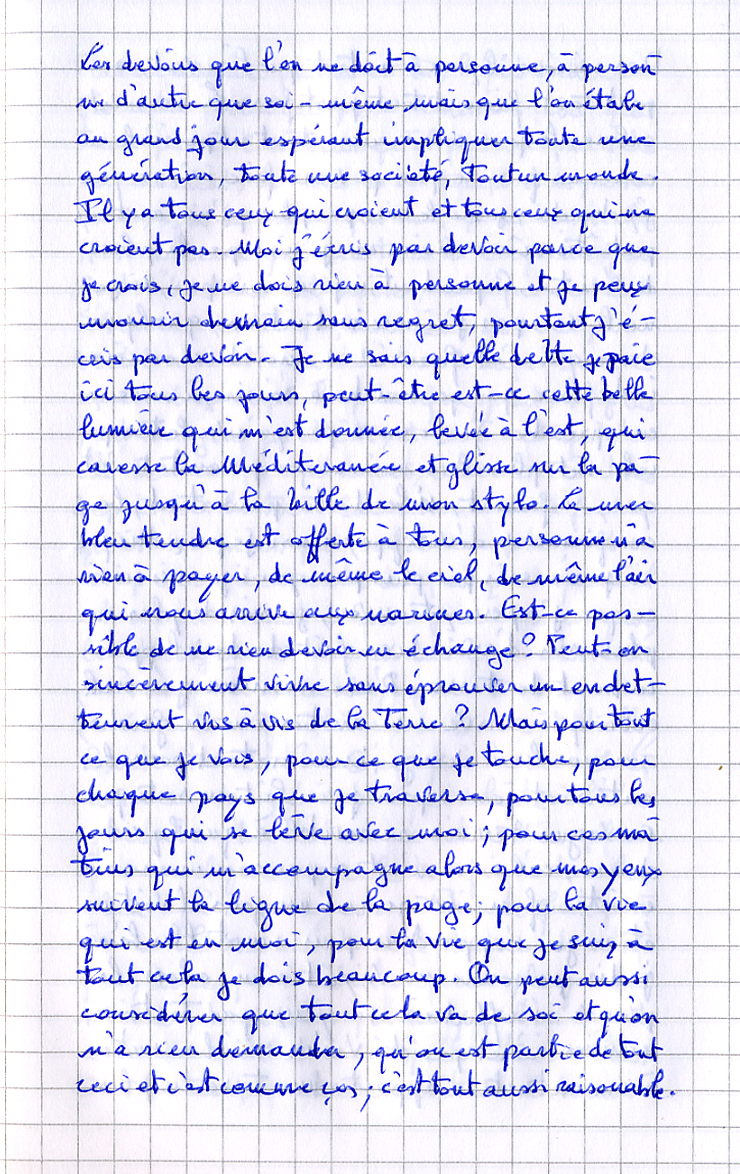 Les devoirs que l'on ne doit à personne, à person
ne d'autre que soi-même mais que l'on étale
au grand jour espérant impliquer toute une
génération, toute une société, tout un monde.
Il y a tous ceux qui croient et tous ceux qui ne
croient pas. Moi j'écris par devoir parce que
je crois, je ne dois rien à personne et je peux
mourir demain sans regret, pourtant j'é-
cris par devoir. Je ne sais quelle dette je paie
ici tous les jours, peut-être est-ce cette belle
lumière qui m'est donnée, levée à l'est, qui
caresse la Méditeranée et glisse sur la pa-
ge jusqu'à la bille de mon stylo. La mer
bleu tendre est offerte à tous, personne n'a
rien à payer, de même le ciel, de même l'air
qui nous arrive aux narines. Est-ce pos-
sible de ne rien devoir en échange ? Peut-on
sincèrement vivre sans éprouver un endet-
tement vis à vis de la Terre ? Mais pour tout
ce que je vois, pour ce que je touche, pour
chaque pays que je traverse, pour tous les
jours qui se lève avec moi ; pour ces ma
tins qui m'accompagne alors que mes yeux
suivent la ligne de la page ; pour la vie
qui est en moi, pour la vie que je suis à
tout cela je dois beaucoup. On peut aussi
considérer que tout cela va de soi et qu'on
n'a rien demander, qu'on est partie de tout
ceci et c'est comme ças ; c'est tout aussi raisonable.